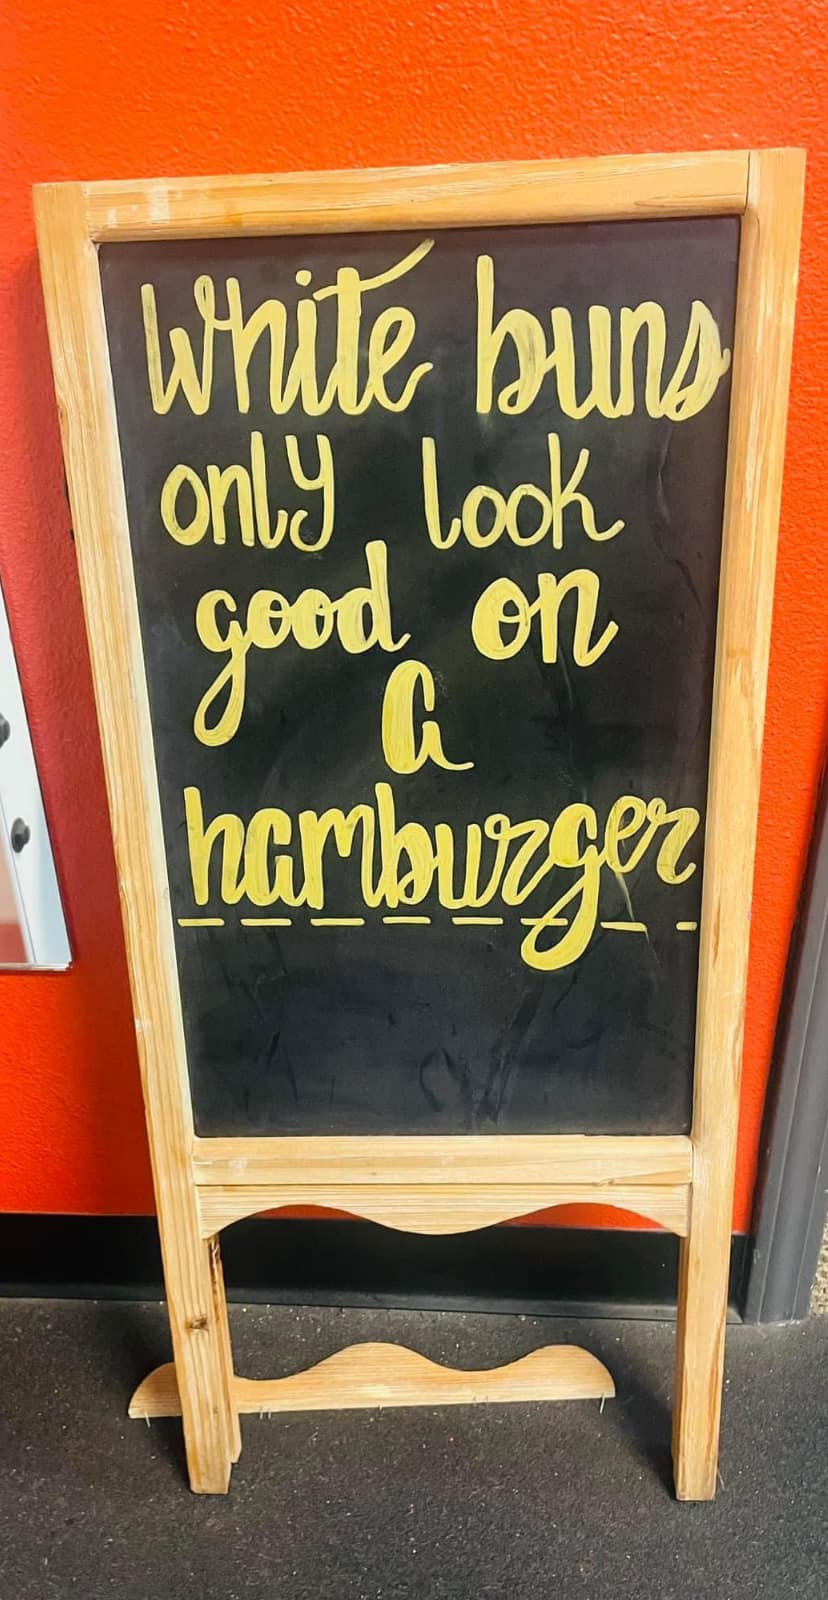 White buns
only look
good on
a
hamburger